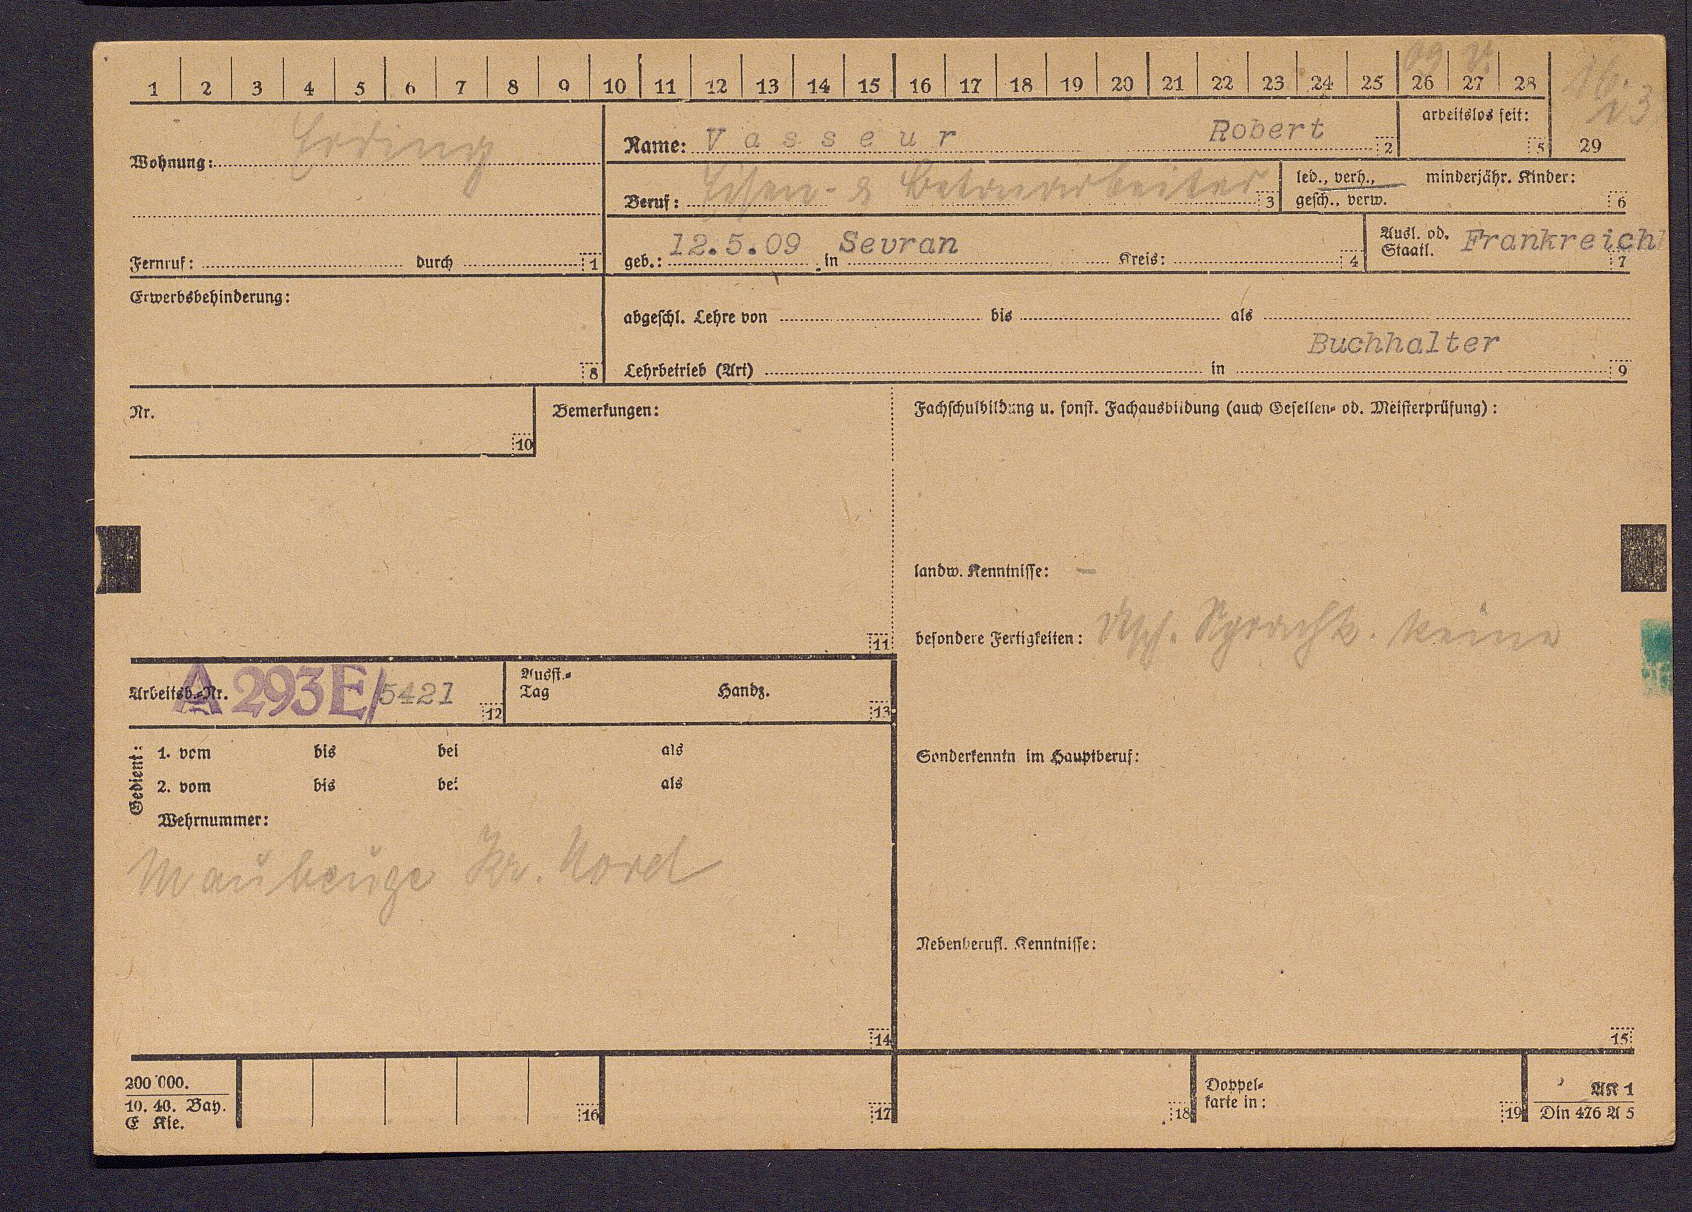 1 2 3 4 5 6 7 8 9 10 11 12 13 14 15 16 17 18 19 20 21 22 23 24 25 26 27 28
09 V.
arbeitslos seit:
5 29
Wohnung: Erding
Name: Vasseur Robert 2
Beruf: Eisen- & Betonarbeiter 3
led., verh., minderjähr. Kinder:
gesch., verw. 6
Fernruf: durch 1
geb.: 12.5.09 in Sevran Kreis: 4
Ausl. od. Staatl. Frankreich 7
Erwerbsbehinderung:
8
abgeschl. Lehre von bis als
Buchhalter
Lehrbetrieb (Art) in 9
Nr.
10
Bemerkungen:
11
Fachschulbildung u. sonst. Fachausbildung (auch Gesellen- od. Meisterprüfung):
landw. Kenntnisse: –
besondere Fertigkeiten: Sprachk. keine
Arbeitsb.-Nr. A 293E/5421 12
Ausst.-Tag Handz. 13
Gedient:
1. vom bis bei als
2. vom bis bei als
Wehrnummer:
Maubeuge Kr. Nord
14
Sonderkenntn im Hauptberuf:
Nebenberufl. Kenntnisse:
15
200 000.
10. 40. Bay.
E Kie.
16 17 18
Doppel-
karte in: 19
AK 1
Din 476 A 5